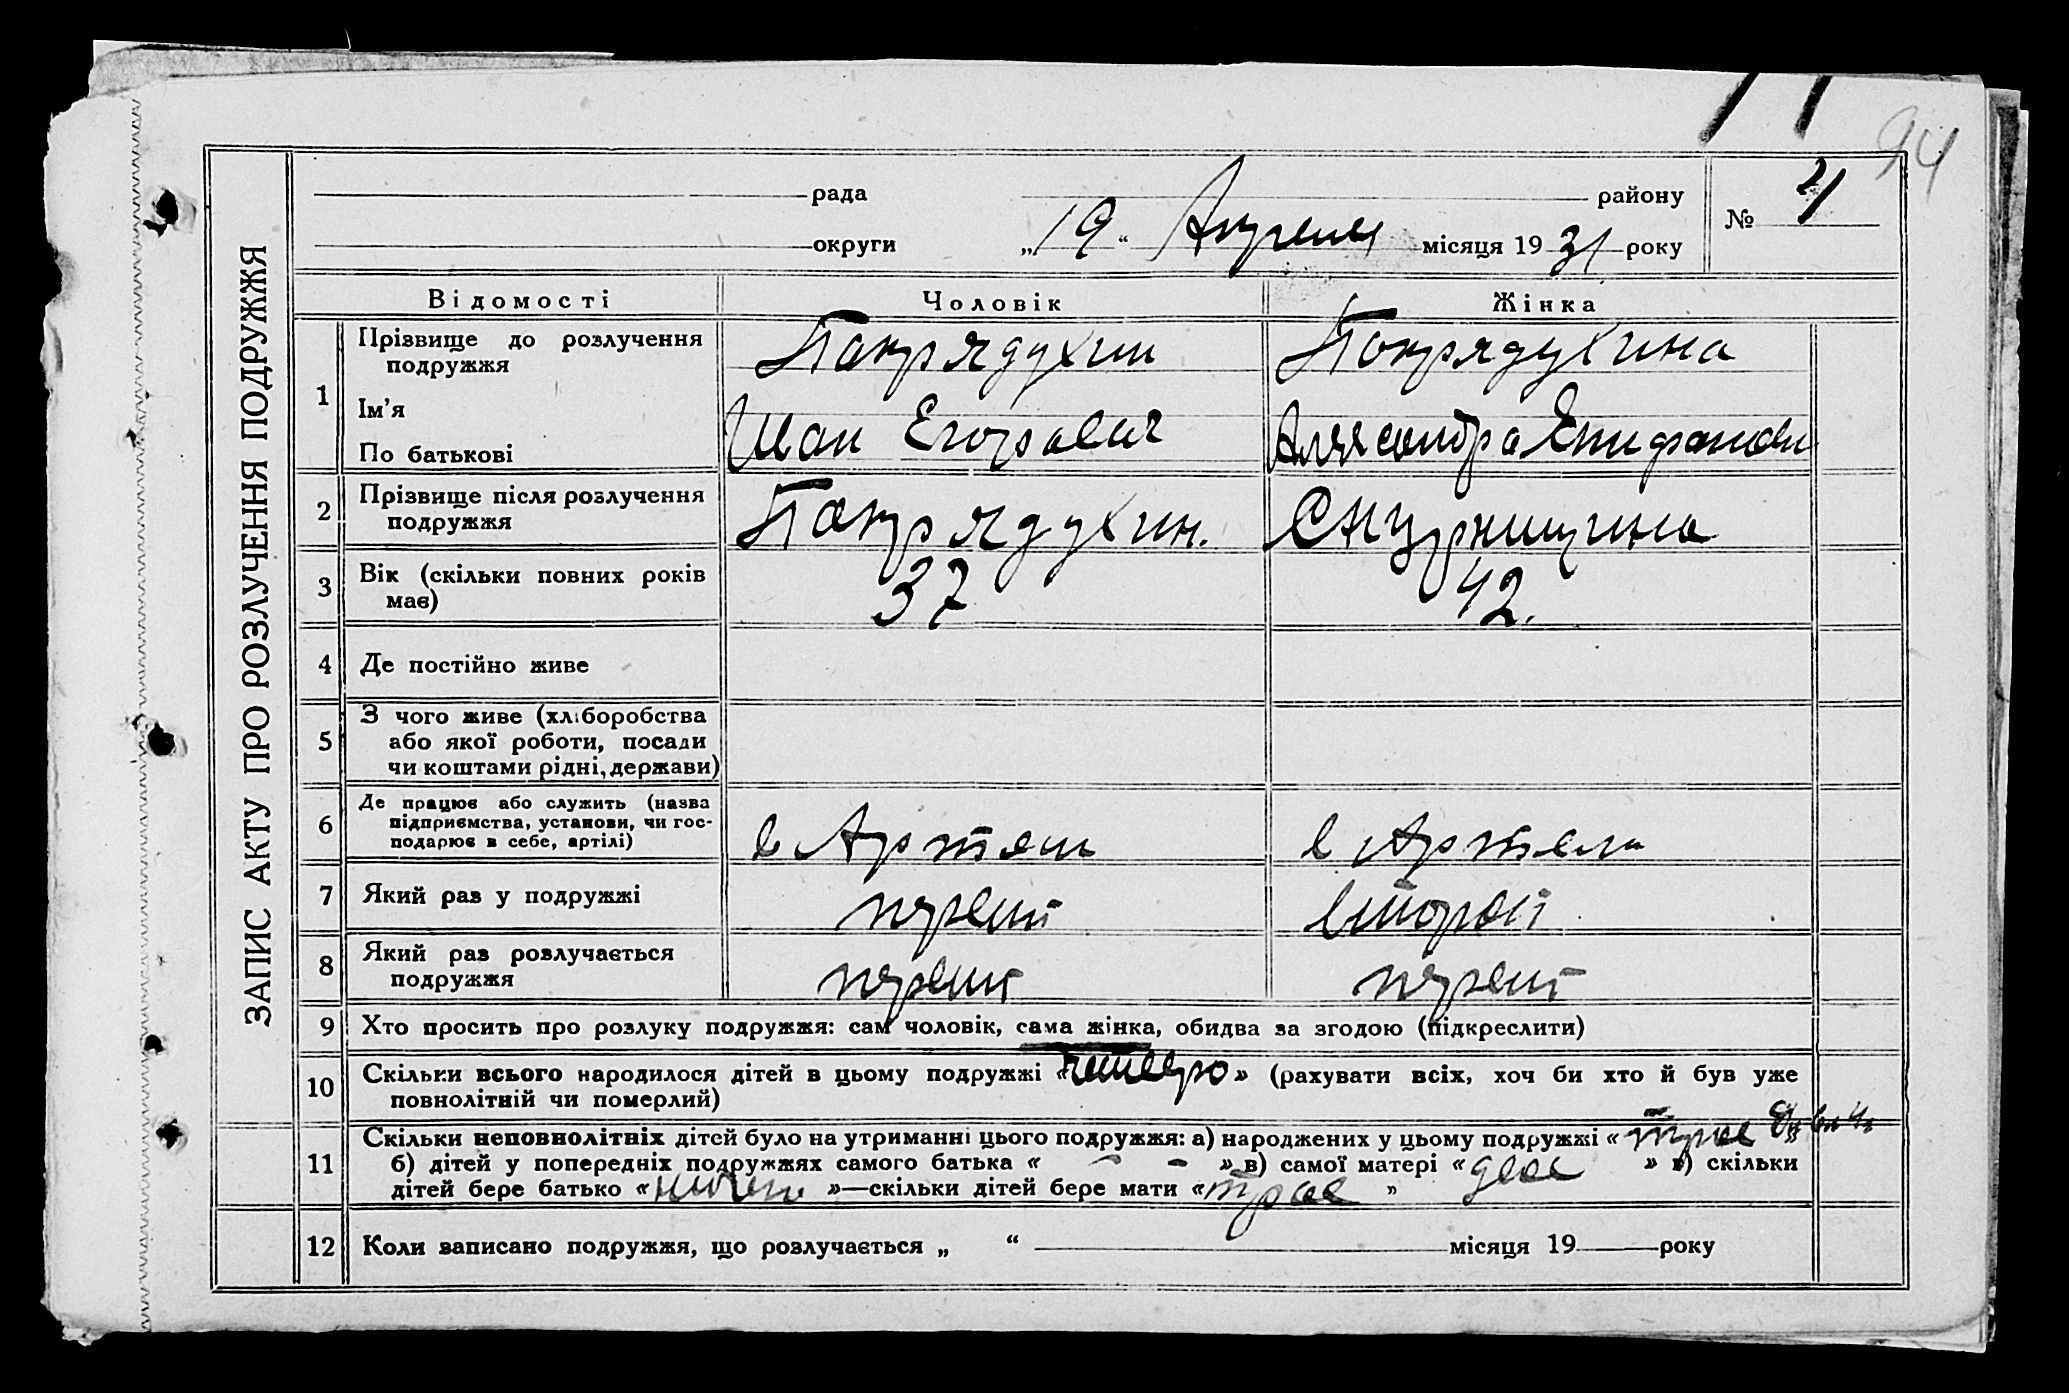 94
ЗАПИС АКТУ ПРО РОЗЛУЧЕННЯ ПОДРУЖЖЯ
рада району
округи „19“ Апреля місяця 1931 року
№ 4
Відомості Чоловік Жінка
1 Прізвище до розлучення подружжя Попрядухин Попрядухина
Ім'я
По батькові Иван Егорович Александра Епифанов
2 Прізвище після розлучення подружжя Попрядухин.
3 Вік (скільки повних років має) 37 42.
4 Де постійно живе
5 З чого живе (хліборобства
або якої роботи, посади
чи коштами рідні, держави)
6 Де працює або служить (назва
підприємства, установи, чи гос-
подарює в себе, артілі) в Артели в Артели
7 Який раз у подружжі первый второй
8 Який раз розлучається подружжя первый первый
9 Хто просить про розлуку подружжя: сам чоловік, сама жінка, обидва за згодою (підкреслити)
10 Скільки всього народилося дітей в цьому подружжі «четверо» (рахувати всіх, хоч би хто й був уже
повнолітній чи померлий)
11 Скільки неповнолітніх дітей було на утриманні цього подружжя: а) народжених у цьому подружжі «трое
б) дітей у попередніх подружжях самого батька « - - » в) самої матері «двое» г) скільки
дітей бере батько « »—скільки дітей бере мати «трое»
12 Коли записано подружжя, що розлучається „ “ місяця 19 року